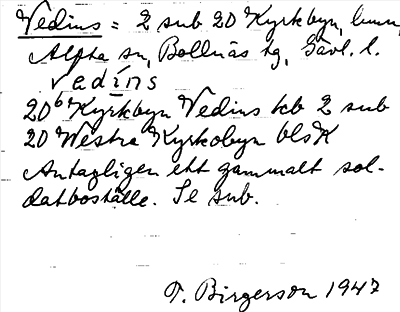 Vedins = 2 sub 20 Kyrkbyn,
Alfta sn, Bollnäs tg, Gävl. l.
vedíns
20b Kyrkbyn Vedins hcb 2 sub
20 Westra Kyrkobyn blsK
Antagligen ett gammalt sol-
datboställe. Se sub.
T. Birgerson 1947